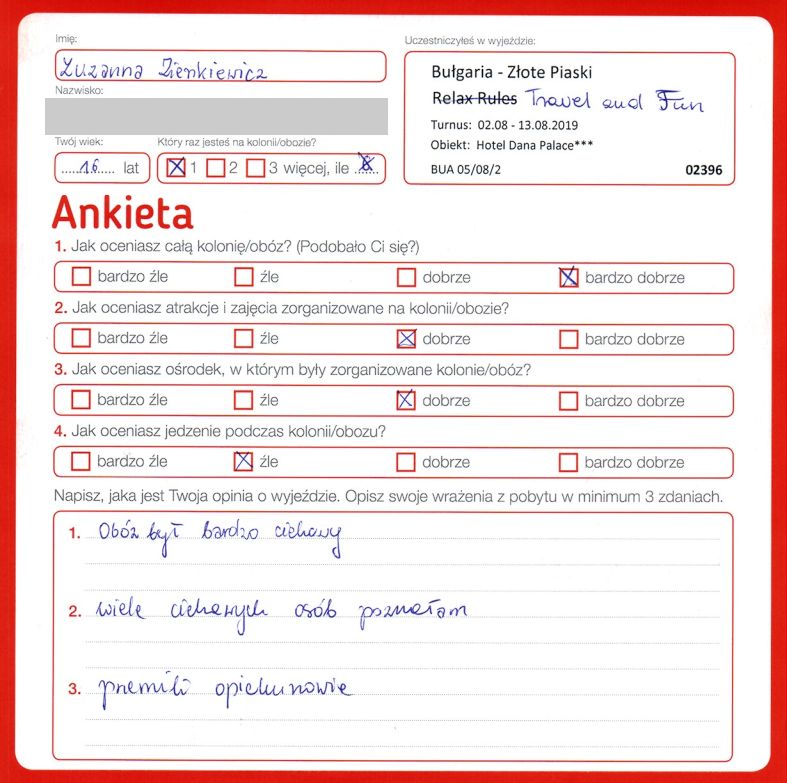 Imię:
Zuzanna Zienkiewicz
Nazwisko:
Twój wiek:
16 lat
Który raz jesteś na kolonii/obozie?
1 2 3 więcej, ile
Uczestniczyłeś w wyjeździe:
Bułgaria - Złote Piaski
Relax Rules Travel and Fun
Turnus: 02.08 - 13.08.2019
Obiekt: Hotel Dana Palace***
BUA 05/08/2 02396
Ankieta
1. Jak oceniasz całą kolonię/obóz? (Podobało Ci się?)
bardzo źle źle dobrze bardzo dobrze
2. Jak oceniasz atrakcje i zajęcia zorganizowane na kolonii/obozie?
bardzo źle źle dobrze bardzo dobrze
3. Jak oceniasz ośrodek, w którym były zorganizowane kolonie/obóz?
bardzo źle źle dobrze bardzo dobrze
4. Jak oceniasz jedzenie podczas kolonii/obozu?
bardzo źle źle dobrze bardzo dobrze
Napisz, jaka jest Twoja opinia o wyjeździe. Opisz swoje wrażenia z pobytu w minimum 3 zdaniach.
1. Obóz był bardzo ciekawy
2. wiele ciekawych osób poznałam
3. przemili opiekunowie